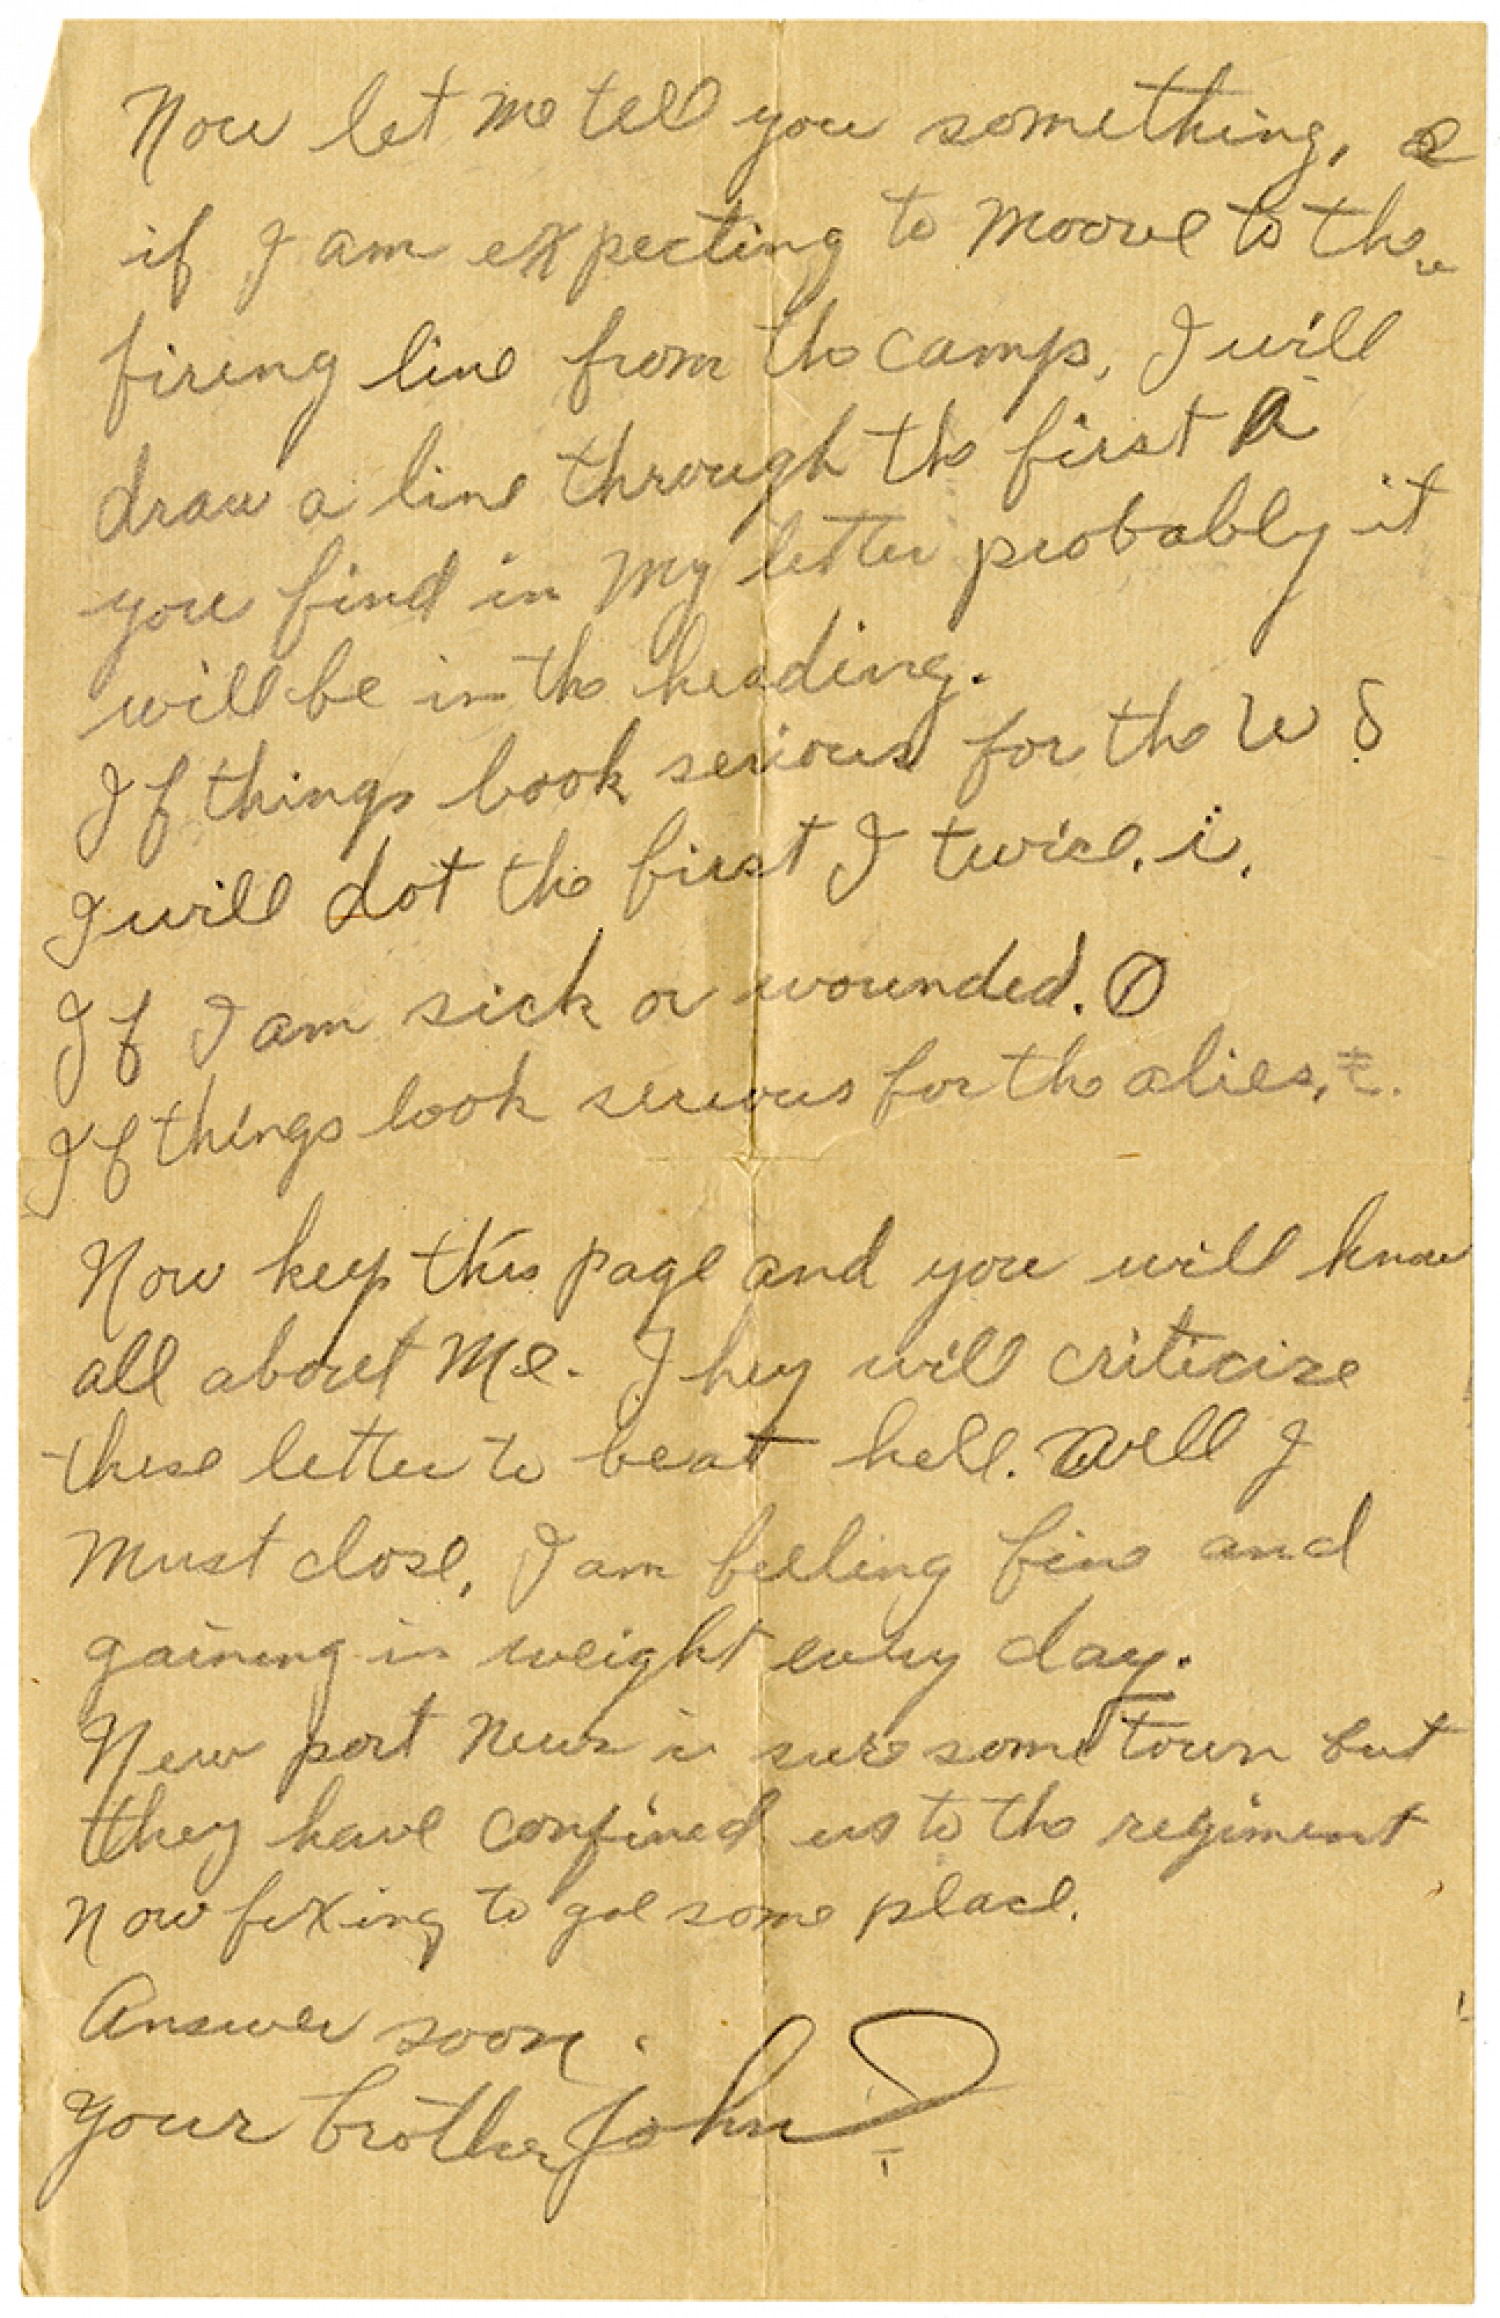 Now let me tell you something,
if I am expecting to moove to the
firing line from the camp, I will
draw a line through the first A
you find in my letter probably it
will be in the heading.
If things look serious for the U S
I will dot the first I twice. i.
If I am sick or wounded. O
If things look serious for the alies, t.
Now keep this page and you will know
all about me. They will criticize
these letter to beat hell. Well I
must close, I am feeling fine and
gaining in weight every day.
New port News is sure some town but
they have confined us to the regiment
now fixing to goe some place.
Answer soon.
Your brother John